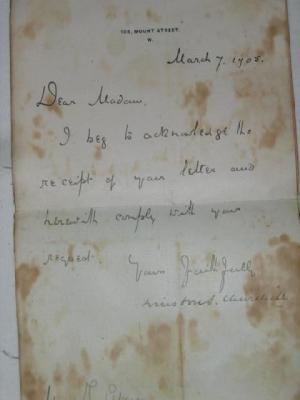 105, MOUNT STREET.
W.
March 7. 1905.
Dear Madam,
I beg to acknowledge the
receipt of your letter and
herewith comply with your
request. Yours faithfully
Winston S. Churchill